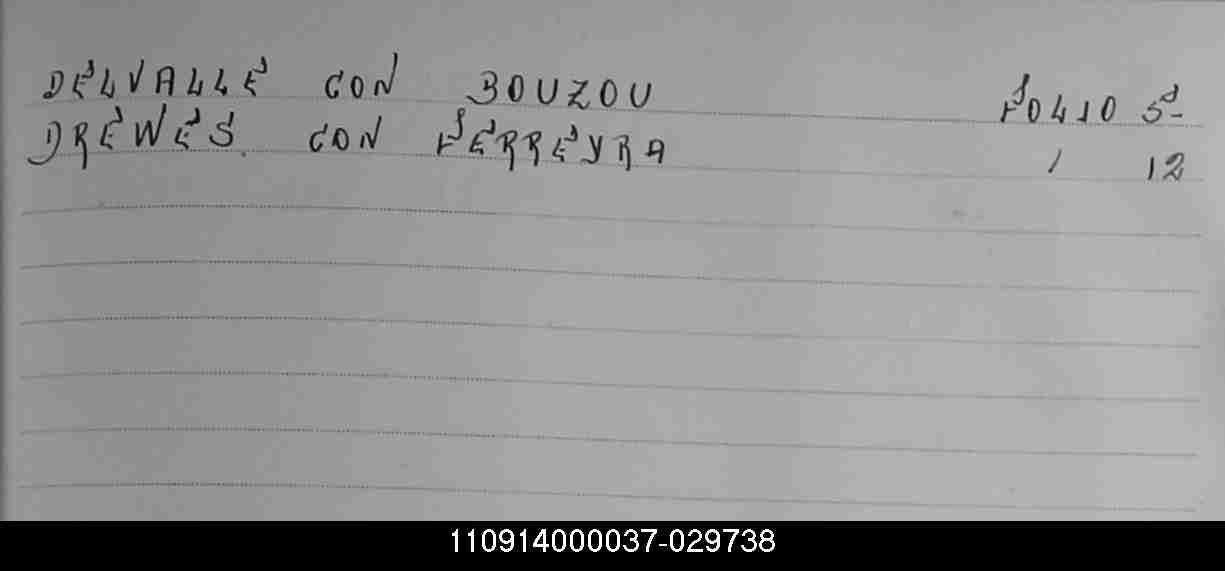 DELVALLE CON BOUZOU FOLIO 5-
DREWES. CON FERREYRA / 12
110914000037-029738